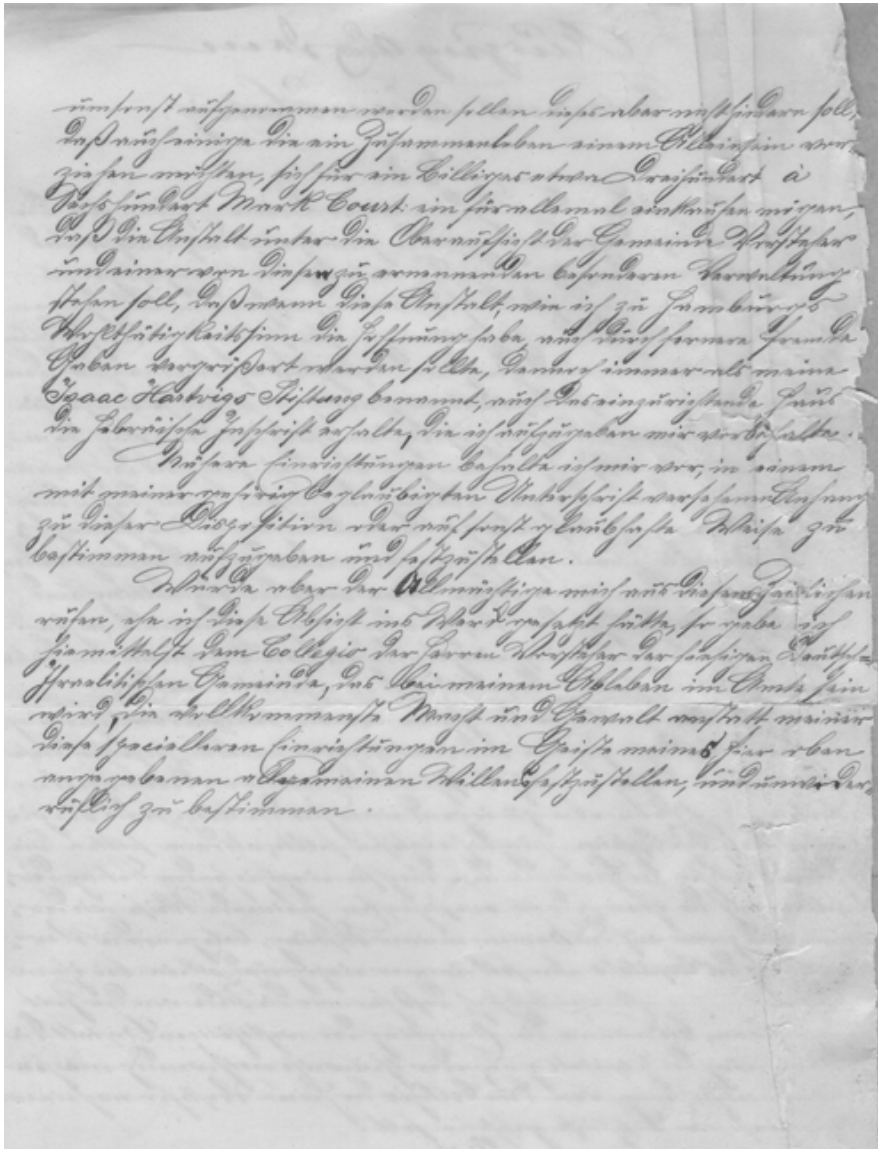 umsonst aufgenommen werden sollen dieses aber nicht hindern soll,
daß auch einige die ein Zusammenleben einem Alleinsein vor
ziehen möchten, sich für ein Billiges etwa Dreihundert à
Sechshundert Mark Court: ein für allemal einkaufen mögen,
daß die Anstalt unter die Oberaufsicht der Gemeinde Vorsteher
und einer von diesen zu ernennenden besonderen Verwaltung
stehen soll, daß wenn diese Anstalt, wie ich zu Hamburgs
Wohlthätigkeitssinn die Hoffnung habe, auch durch fernere fremde
Gaben vergrößert werden sollte, dennoch immer als meine
Isaac Hartvigs Stiftung benannt, auch das einzurichtende Haus
die hebräische Inschrift erhalte, die ich aufzugeben mir vorbehalte.
Nähere Einrichtungen behalte ich mir vor, in einem
mit meiner gehörig beglaubigten Unterschrift versehenen Anhang
zu dieser Disposition oder auf sonst glaubhafte Weise zu
bestimmen aufzugeben und festzustellen.
Würde aber der Allmächtige mich aus diesem Zeitlichen
rufen, ehe ich diese Absicht ins Werk gesetzt hätte, so gebe ich
hiemittelst dem Collegio der Herren Vorsteher der hiesigen Deutsch=
Israelitischen Gemeinde, das bei meinem Ableben im Amte sein
wird, die vollkommenste Macht und Gewalt anstatt meiner
diese specielleren Einrichtungen im Geiste meines hier oben
angegebenen allgemeinen Willens festzustellen, und unwider=
ruflich zu bestimmen.